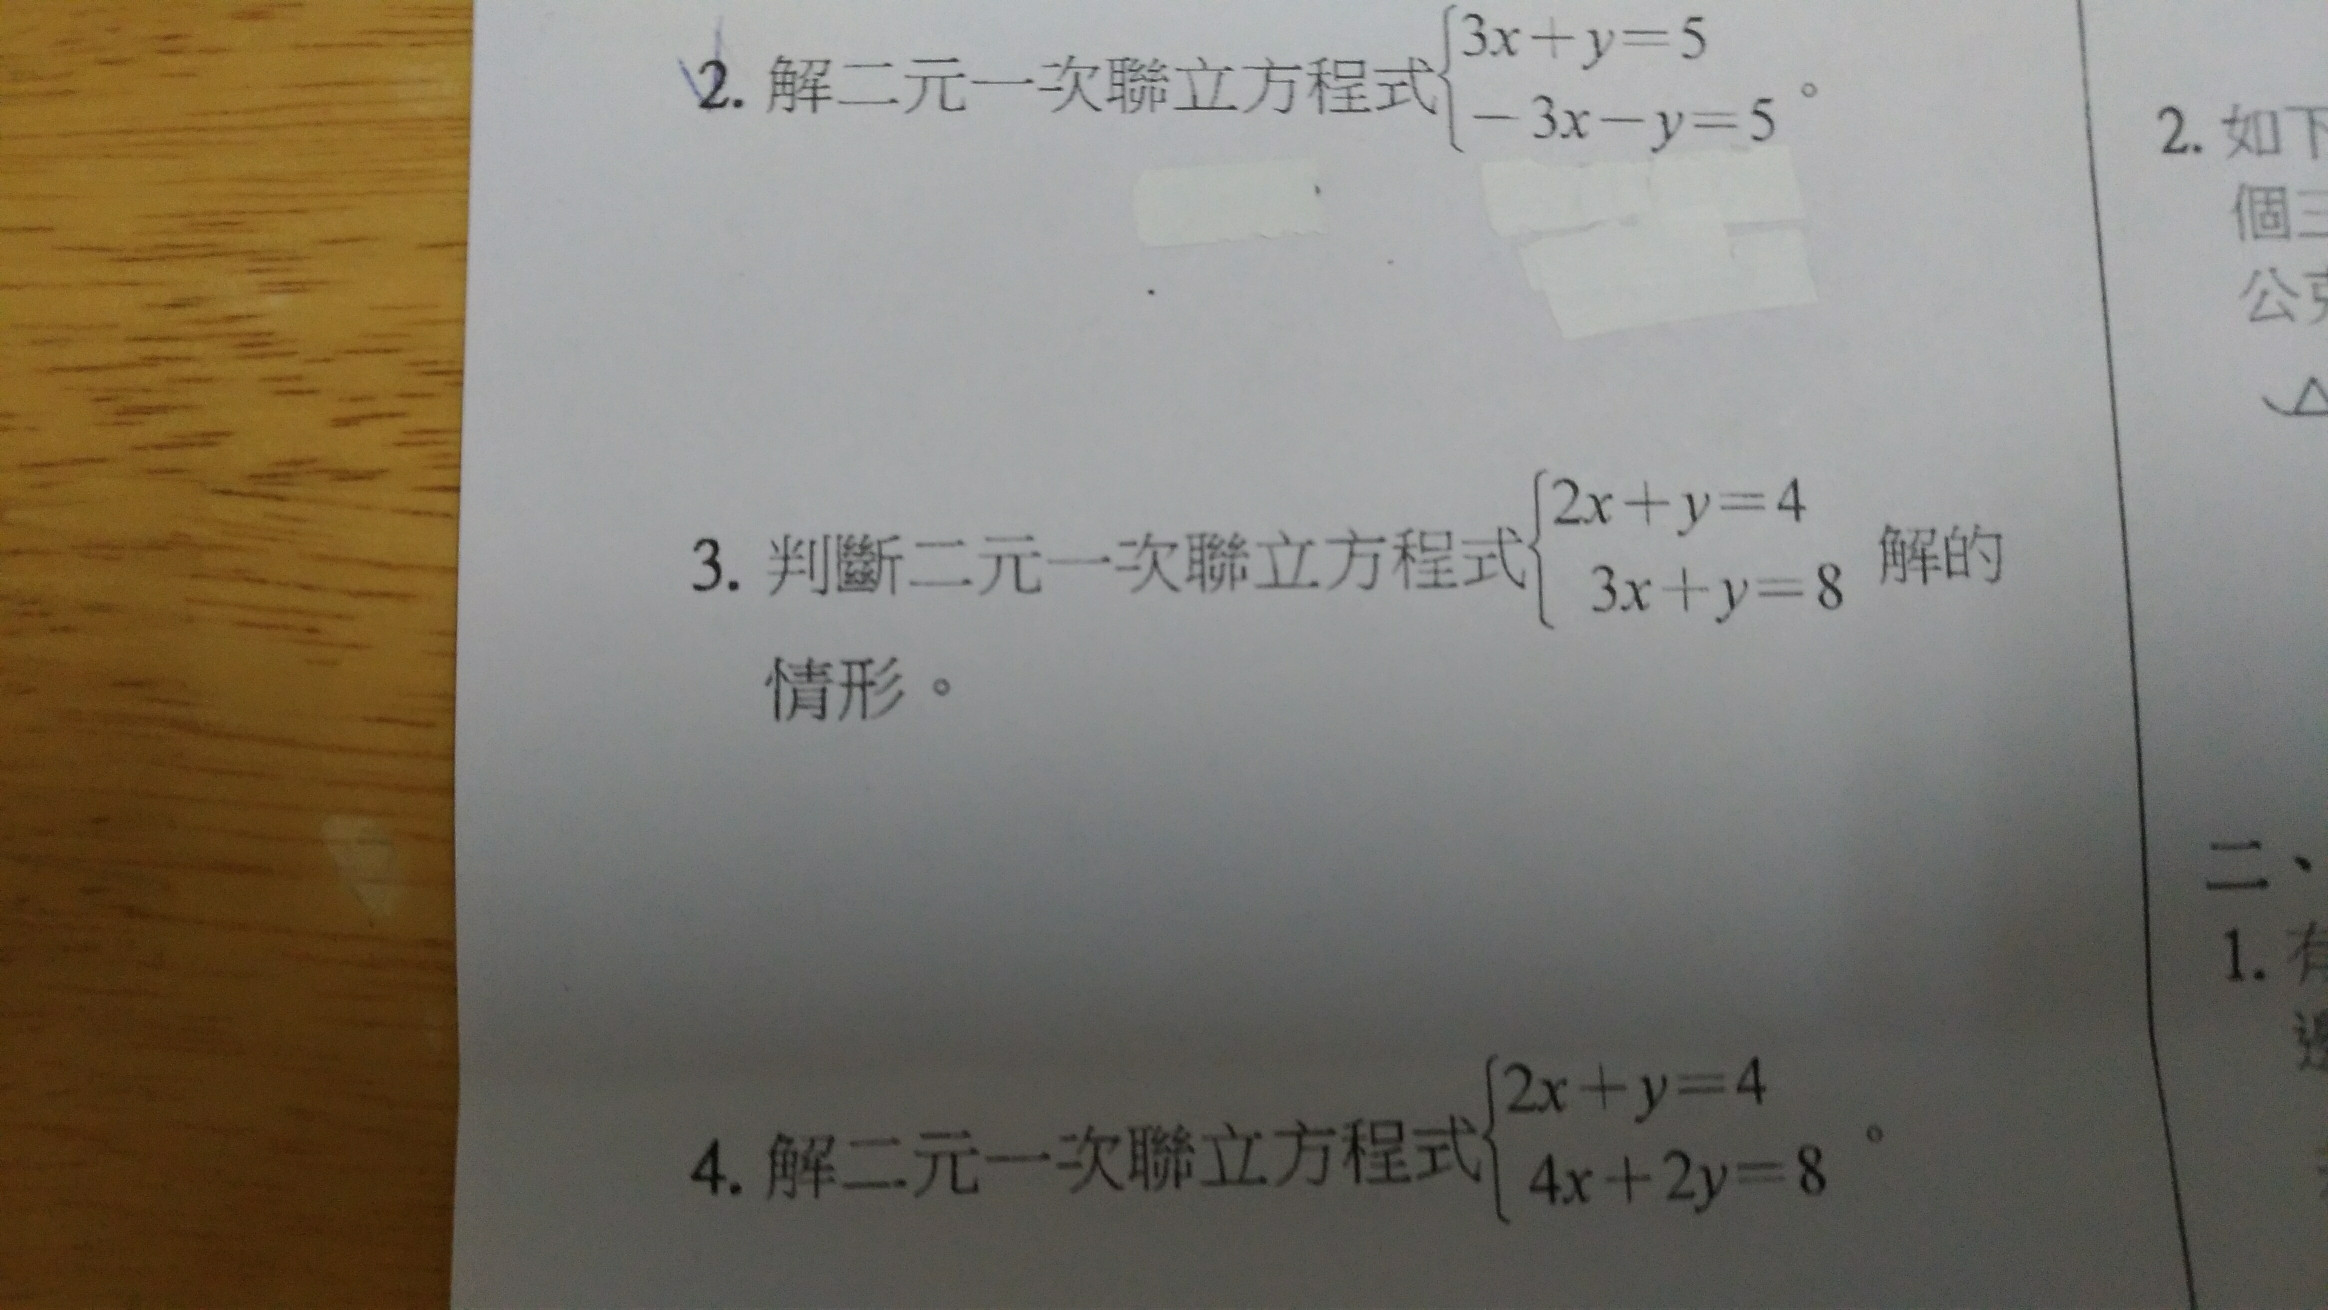 2. 解二元一次聯立方程式{3x+y=5
−3x−y=5。
3. 判斷二元一次聯立方程式{2x+y=4
3x+y=8 解的
情形。
4. 解二元一次聯立方程式{2x+y=4
4x+2y=8。
2. 如下
個三
公克
二、
1. 有
邊